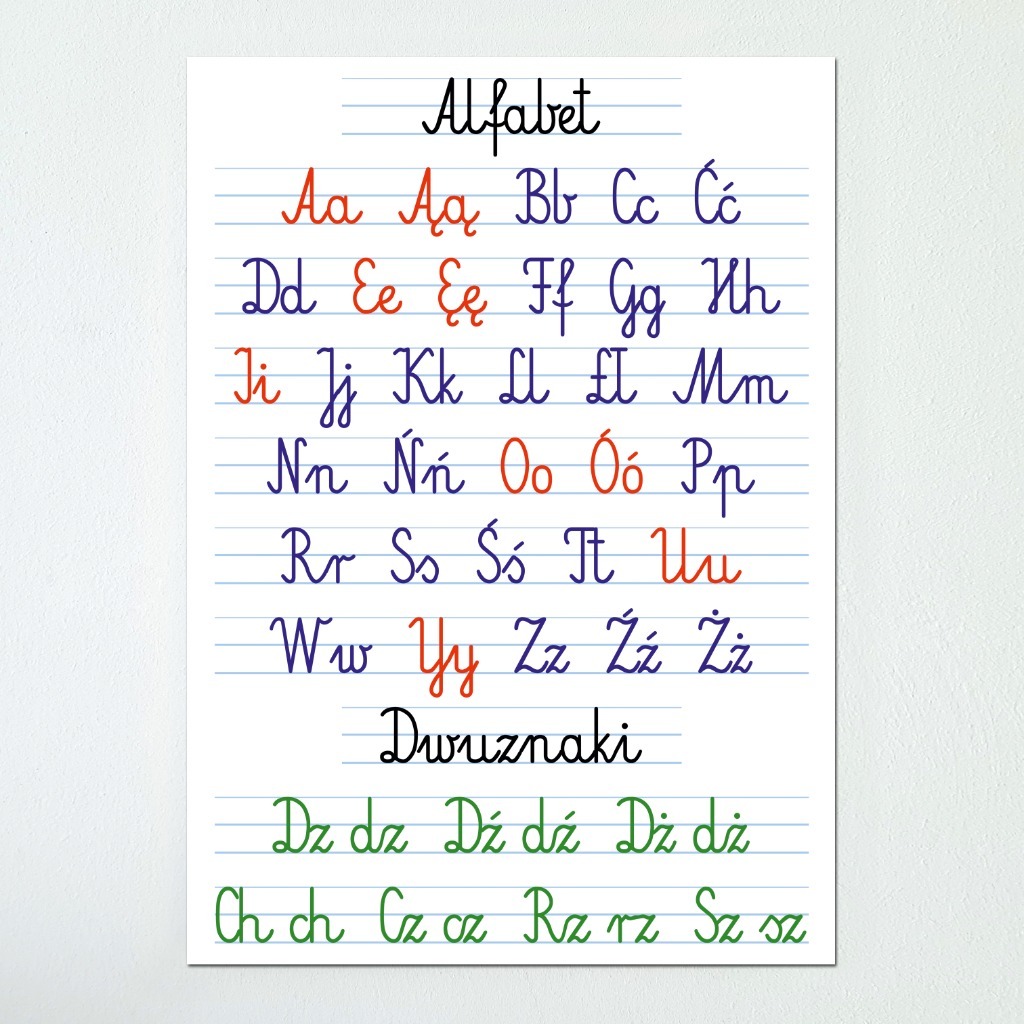 Alfabet
Aa Ąą Bb Cc Ćć
Dd Ee Ęę Ff Gg Hh
Ii Jj Kk Ll Łł Mm
Nn Ńń Oo Óó Pp
Rr Ss Śś Tt Uu
Ww Yy Zz Źź Żż
Dwuznaki
Dz dz Dź dź Dż dż
Ch ch Cz cz Rz rz Sz sz